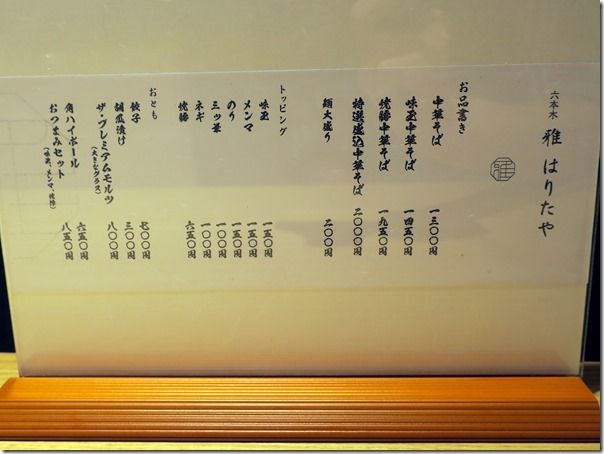 六本木
雅 はりたや
雅
お品書き
中華そば 一三〇〇円
味玉中華そば 一四五〇円
焼豚中華そば 一九五〇円
特選盛込中華そば 二〇〇〇円
麺大盛り 二〇〇円
トッピング
味玉 一五〇円
メンマ 一五〇円
のり 一五〇円
三ッ葉 一〇〇円
ネギ 一〇〇円
焼豚 六五〇円
おとも
餃子 七〇〇円
胡瓜漬け 三〇〇円
ザ・プレミアムモルツ 八〇〇円
(大きなグラス)
角ハイボール 六五〇円
おつまみセット 八五〇円
(味玉、メンマ、焼豚)